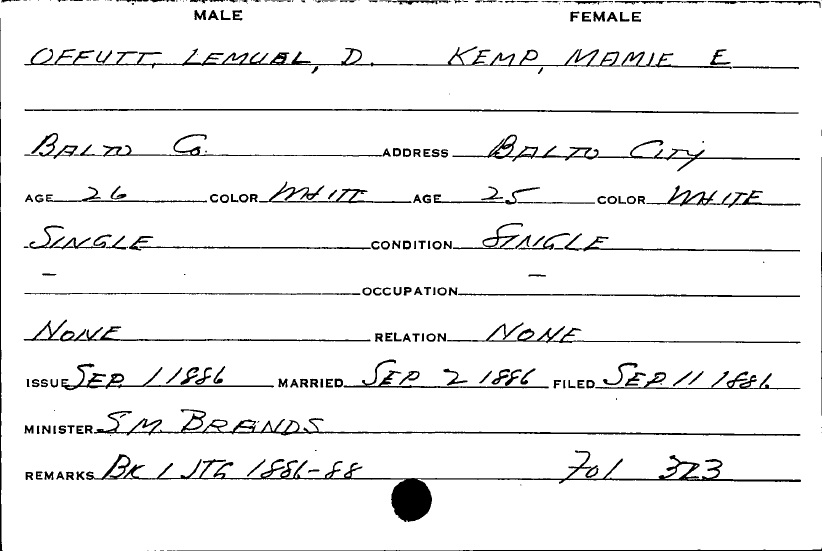 MALE FEMALE
OFFUTT, LEMUEL, D. KEMP, MAMIE E
BALTO Co. ADDRESS BALTO CITY
AGE 26 COLOR WHITE AGE 25 COLOR WHITE
SINGLE CONDITION SINGLE
- OCCUPATION -
NONE RELATION NONE
ISSUE SEP. 1 1886 MARRIED SEP 2 1886 FILED SEP. 11 1886
MINISTER S M. BRANDS
REMARKS BK 1 JTG 1886-88 Fol 323